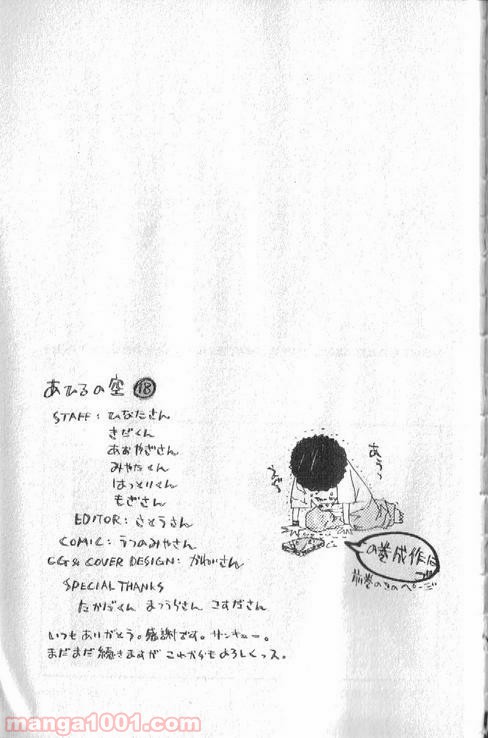 あひるの空 18
STAFF: ひなたさん
きだくん
あおやぎさん
みやたくん
はっとりくん
もぎさん
EDITOR: さとうさん
COMIC: うつのみやさん
CG's & COVER DESIGN: かわいさん
SPECIAL THANKS
たかだくん まつうらさん こすださん
いつもありがとう。感謝です。サンキュー。
まだまだ続きますが これからもよろしくっス。
あうっ
えぐっ
の巻成作は
manga1001.com